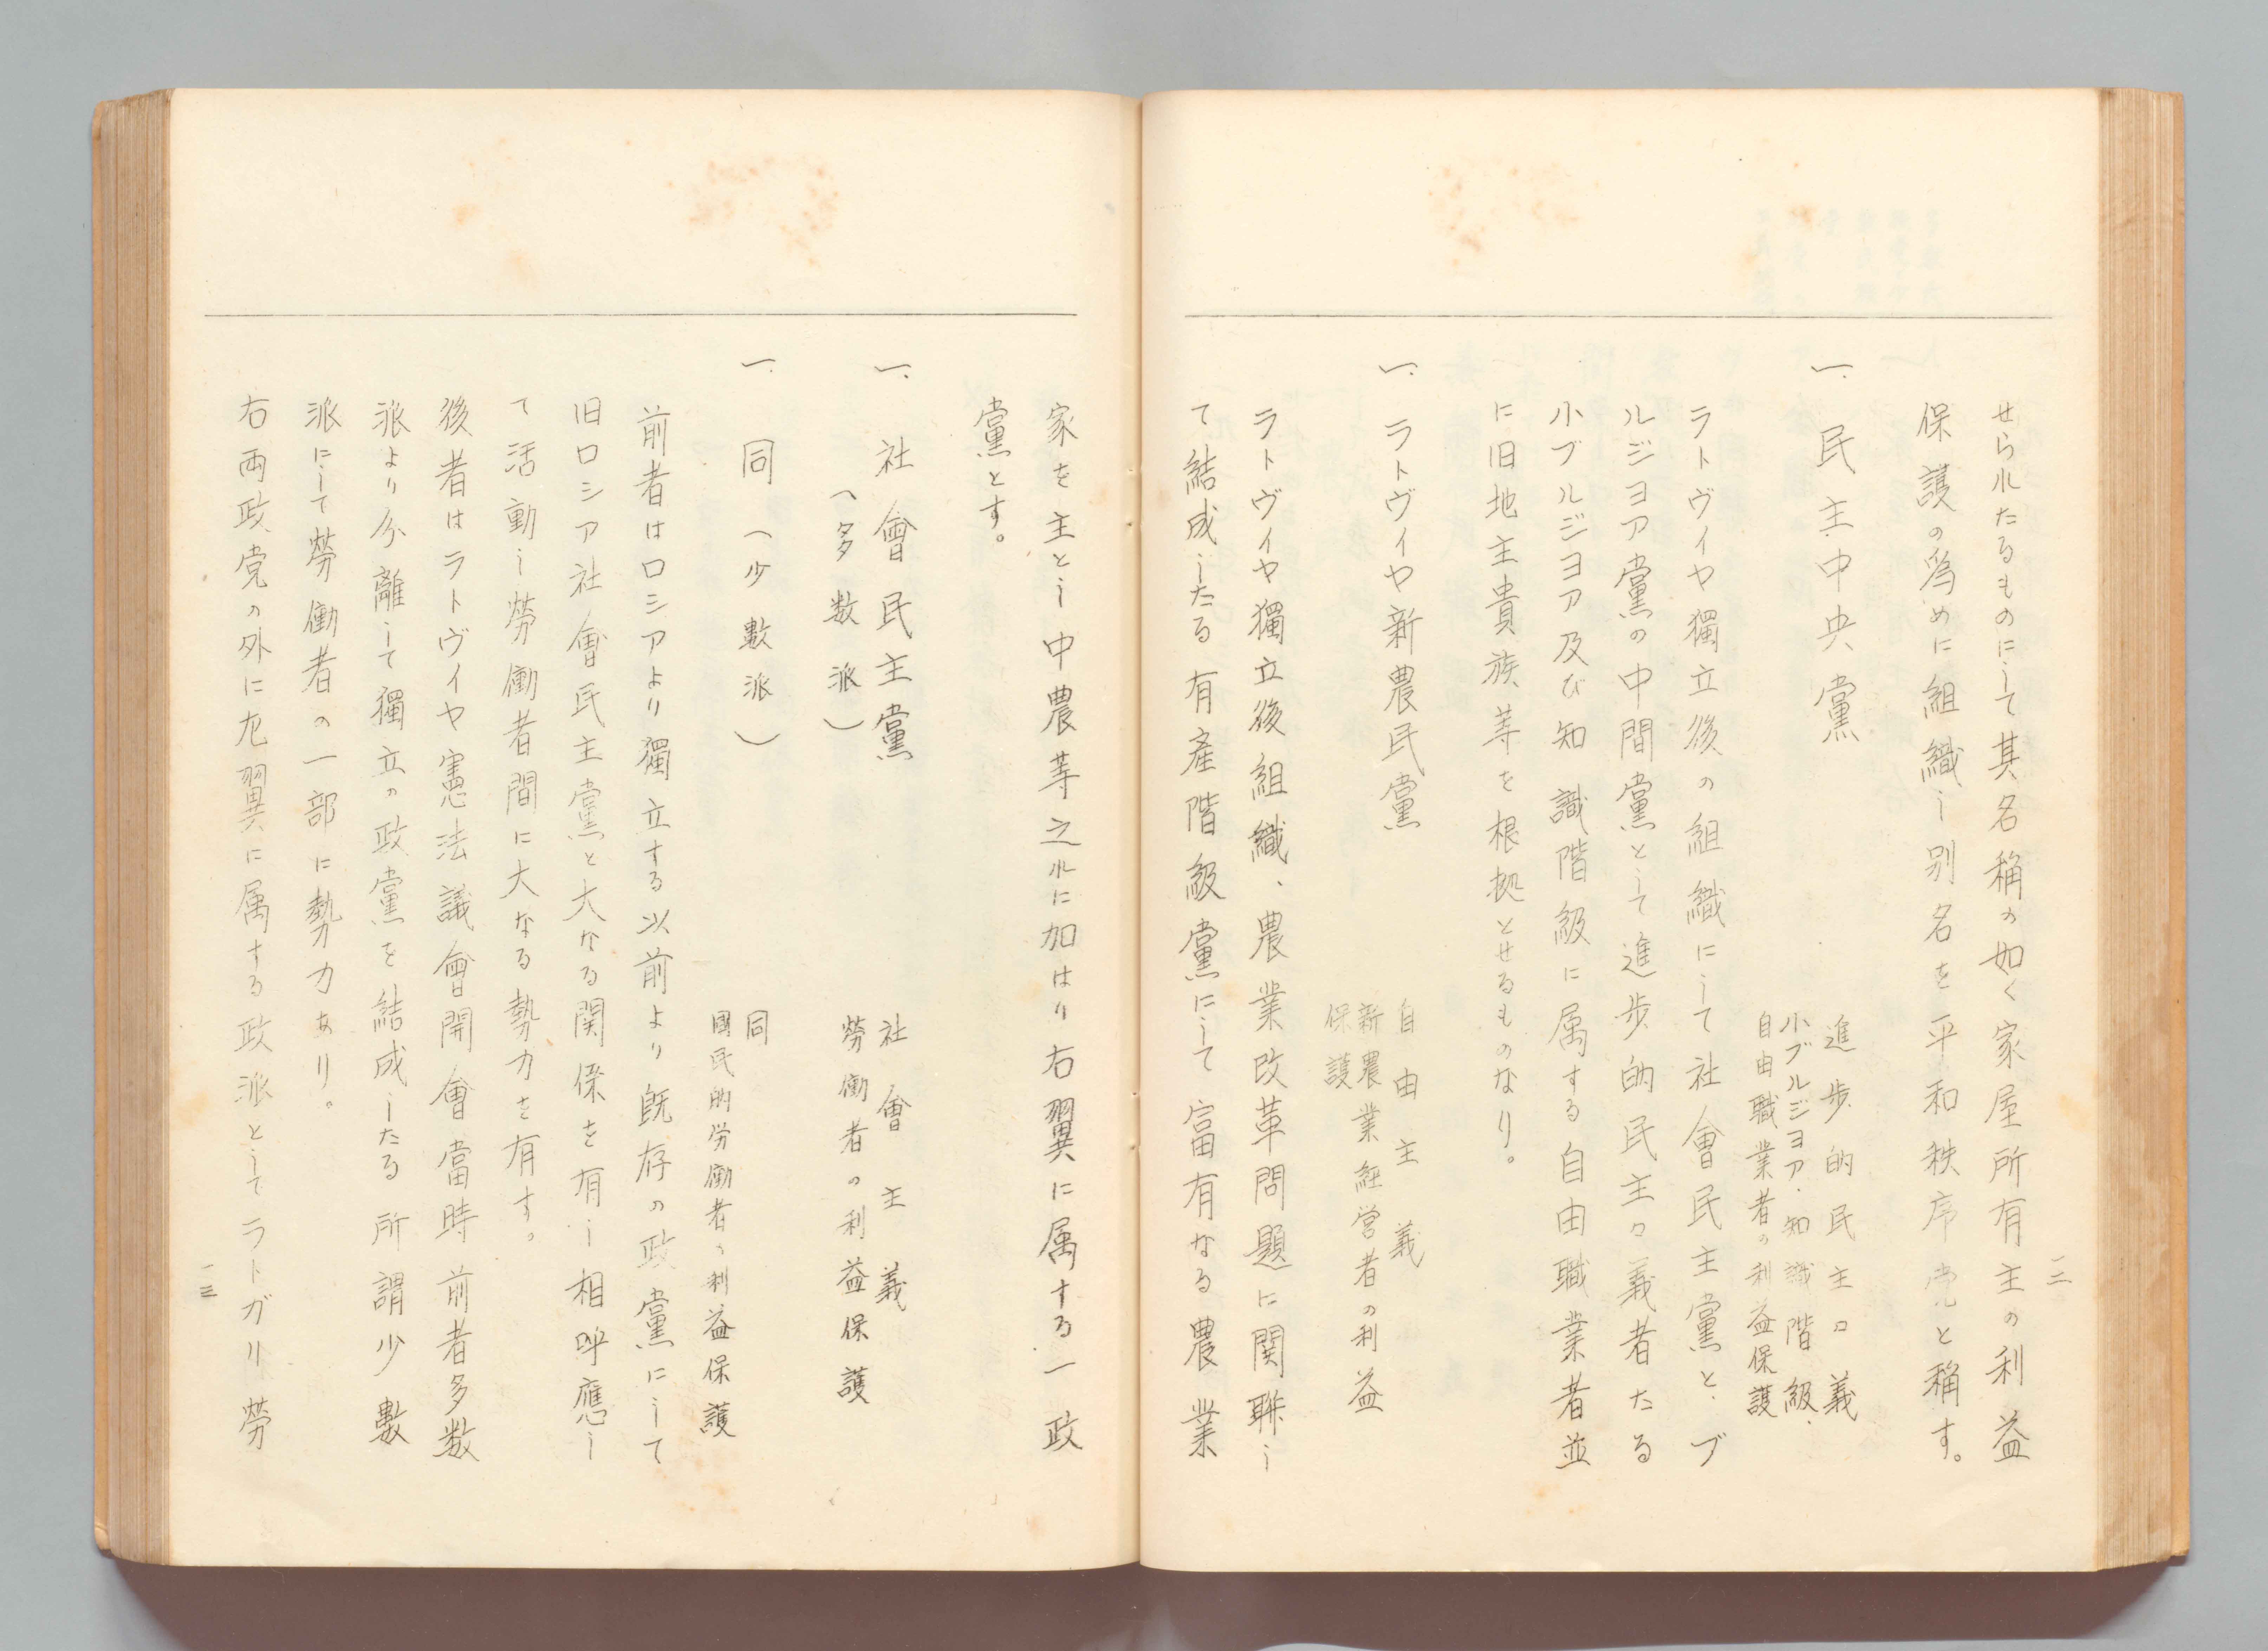 せられたるものにして其名稱の如く家屋所有主の利益
保護の為めに組織し別名を平和秩序党と稱す。
一、民主中央黨
進歩的民主々義
小ブルジヨア、知識階級、
自由職業者の利益保護
ラトヴイヤ獨立後の組織にして社會民主黨と、ブ
ルジヨア黨の中間黨として進歩的民主々義者たる
小ブルジヨア及び知識階級に属する自由職業者並
に旧地主貴族等を根拠とせるものなり。
一、ラトヴイヤ新農民黨
自由主義
新農業経営者の利益
保護
ラトヴイヤ獨立後組織、農業改革問題に関聯し
て結成したる有産階級黨にして富有なる農業
一二
家を主とし中農等之れに加はり右翼に属する一政
黨とす。
一、社會民主黨
(多数派)
社會主義
勞働者の利益保護
一、同(少數派)
同
國民的労働者の利益保護
前者はロシアより獨立する以前より既存の政黨にして
旧ロシア社會民主黨と大なる関係を有し相呼應し
て活動し勞働者間に大なる勢力を有す。
後者はラトヴイヤ憲法議會開會當時前者多数
派より分離して獨立の政黨を結成したる所謂少數
派にして勞働者の一部に勢力あり。
右両政党の外に左翼に属する政派としてラトガリ勞
一三